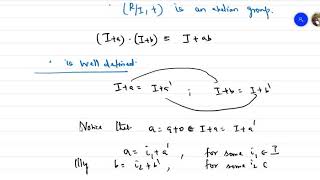 · (R/I, +) is an abelian group.
(I+a)·(I+b) = I+ab
· is well defined.
I+a = I+a' ; I+b = I+b'
Notice that a = a+0 ∈ I+a = I+a'
a = i₁+a', for some i₁ ∈ I
|||ly b = i₂+b', for some i₂ ∈